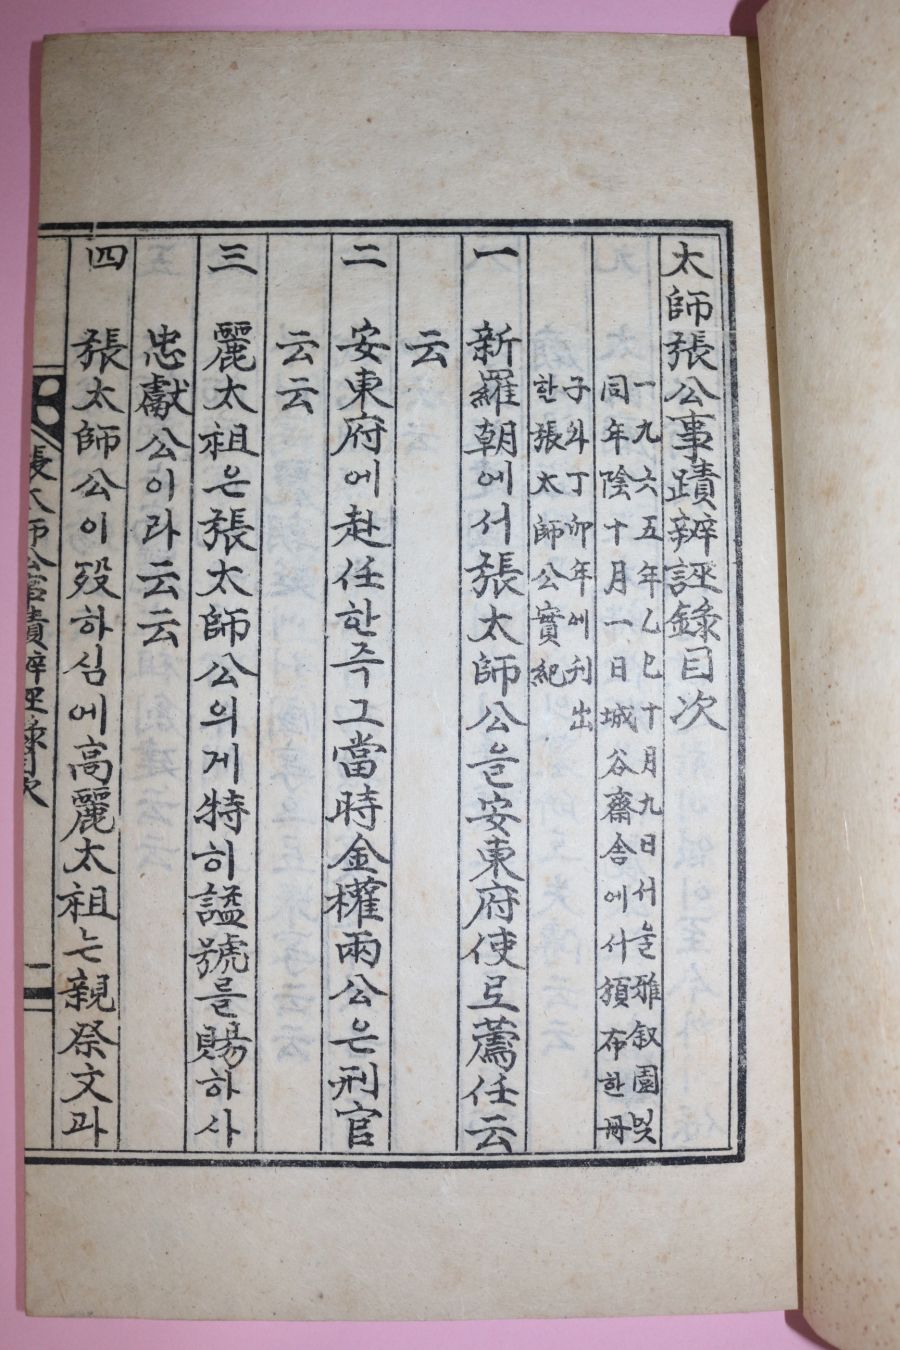 太師張公事蹟辨誣錄目次
一九六五年乙巳十月九日서울雅叙園및
同年陰十月一日城谷齋舍에서頒布한冊
子와丁卯年에刊出
한張太師公實紀
一 新羅朝에서張太師公을安東府使로薦任云
云
二 安東府에赴任한즉그當時金權兩公은刑官
云云
三 麗太祖은張太師公의게特히謚號를賜하사
忠獻公이라云云
四 張太師公이歿하심에高麗太祖는親祭文과
張太師公事蹟辨誣錄目次